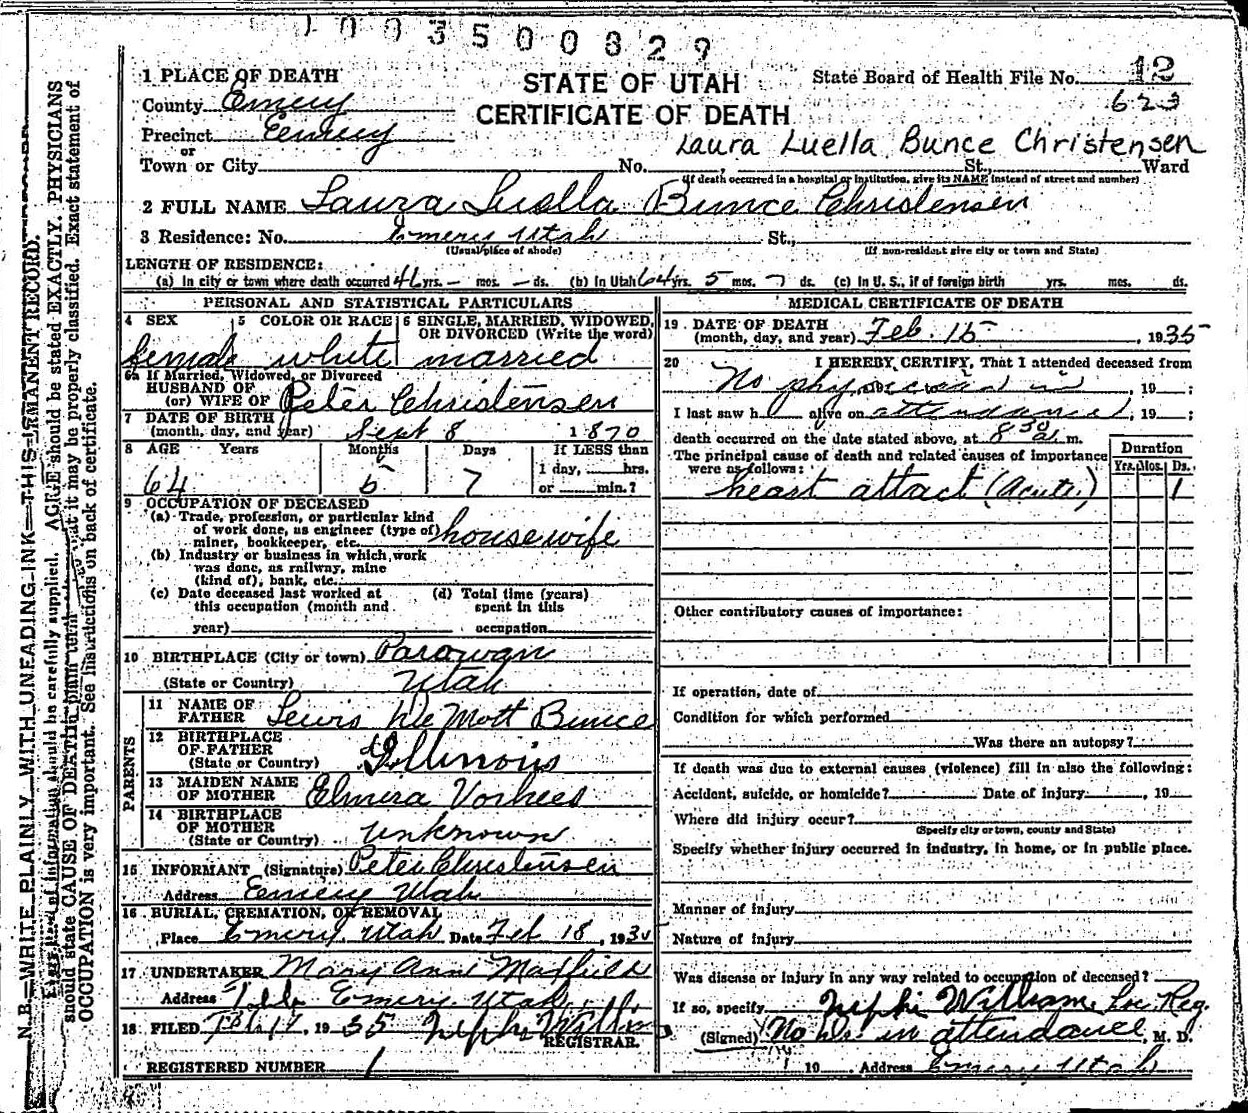 1003500829
1 PLACE OF DEATH
STATE OF UTAH
State Board of Health File No. 12
County Emery
CERTIFICATE OF DEATH
623
Precinct Emery
or
Laura Luella Bunce Christensen
Town or City No. , St., Ward
(If death occurred in a hospital or institution, give its NAME instead of street and number)
2 FULL NAME Laura Luella Bunce Christensen
3 Residence: No. Emery Utah St.,
(Usual place of abode) (If non-resident give city or town and State)
LENGTH OF RESIDENCE:
(a) In city or town where death occurred 46 yrs. – mos. – ds. (b) In Utah 64 yrs. 5 mos. 7 ds. (c) In U. S., if of foreign birth yrs. mos. ds.
PERSONAL AND STATISTICAL PARTICULARS
4 SEX 5 COLOR OR RACE 6 SINGLE, MARRIED, WIDOWED, OR DIVORCED (Write the word)
female white married
6a If Married, Widowed, or Divorced
HUSBAND OF
(or) WIFE OF Peter Christensen
7 DATE OF BIRTH
(month, day, and year) Sept 8 1870
8 AGE Years Months Days If LESS than
1 day, hrs.
64 5 7 or min.?
9 OCCUPATION OF DECEASED
(a) Trade, profession, or particular kind
of work done, as engineer (type of)
miner, bookkeeper, etc. housewife
(b) Industry or business in which work
was done, as railway, mine
(kind of), bank, etc.
(c) Date deceased last worked at
this occupation (month and
year)
(d) Total time (years)
spent in this
occupation
10 BIRTHPLACE (City or town) Parowan
(State or Country) Utah
PARENTS
11 NAME OF
FATHER Lewis De Mott Bunce
12 BIRTHPLACE
OF FATHER
(State or Country) Illinois
13 MAIDEN NAME
OF MOTHER Elmera Vorhees
14 BIRTHPLACE
OF MOTHER
(State or Country) unknown
15 INFORMANT (Signature) Peter Christensen
Address Emery Utah
16 BURIAL, CREMATION, OR REMOVAL
Place Emery, Utah Date Feb 18, 1935
17 UNDERTAKER Mary Ann
Address Emery Utah
18 FILED Feb 17, 1935 Nephi Williams
REGISTRAR.
REGISTERED NUMBER 1
MEDICAL CERTIFICATE OF DEATH
19 DATE OF DEATH
(month, day, and year) Feb. 15, 1935
20 I HEREBY CERTIFY, That I attended deceased from
No physician in , 19 ;
I last saw h alive on attendance, 19 ;
death occurred on the date stated above, at 8 30 a. m.
The principal cause of death and related causes of importance
were as follows:
Duration
Yrs. Mos. Ds.
heart attact (Acute) 1
Other contributory causes of importance:
If operation, date of
Condition for which performed
Was there an autopsy?
If death was due to external causes (violence) fill in also the following:
Accident, suicide, or homicide? Date of injury , 19
Where did injury occur?
(Specify city or town, county and State)
Specify whether injury occurred in industry, in home, or in public place.
Manner of injury
Nature of injury
Was disease or injury in any way related to occupation of deceased?
If so, specify Nephi William Loc. Reg.
(Signed) No Dr. in attendance, M. D.
19 Address Emery Utah
N. B.—WRITE PLAINLY WITH UNFADING INK—THIS IS A PERMANENT RECORD.
Every item of information should be carefully supplied. AGE should be stated EXACTLY. PHYSICIANS
should state CAUSE OF DEATH in plain terms that it may be properly classified. Exact statement of
OCCUPATION is very important. See instructions on back of certificate.